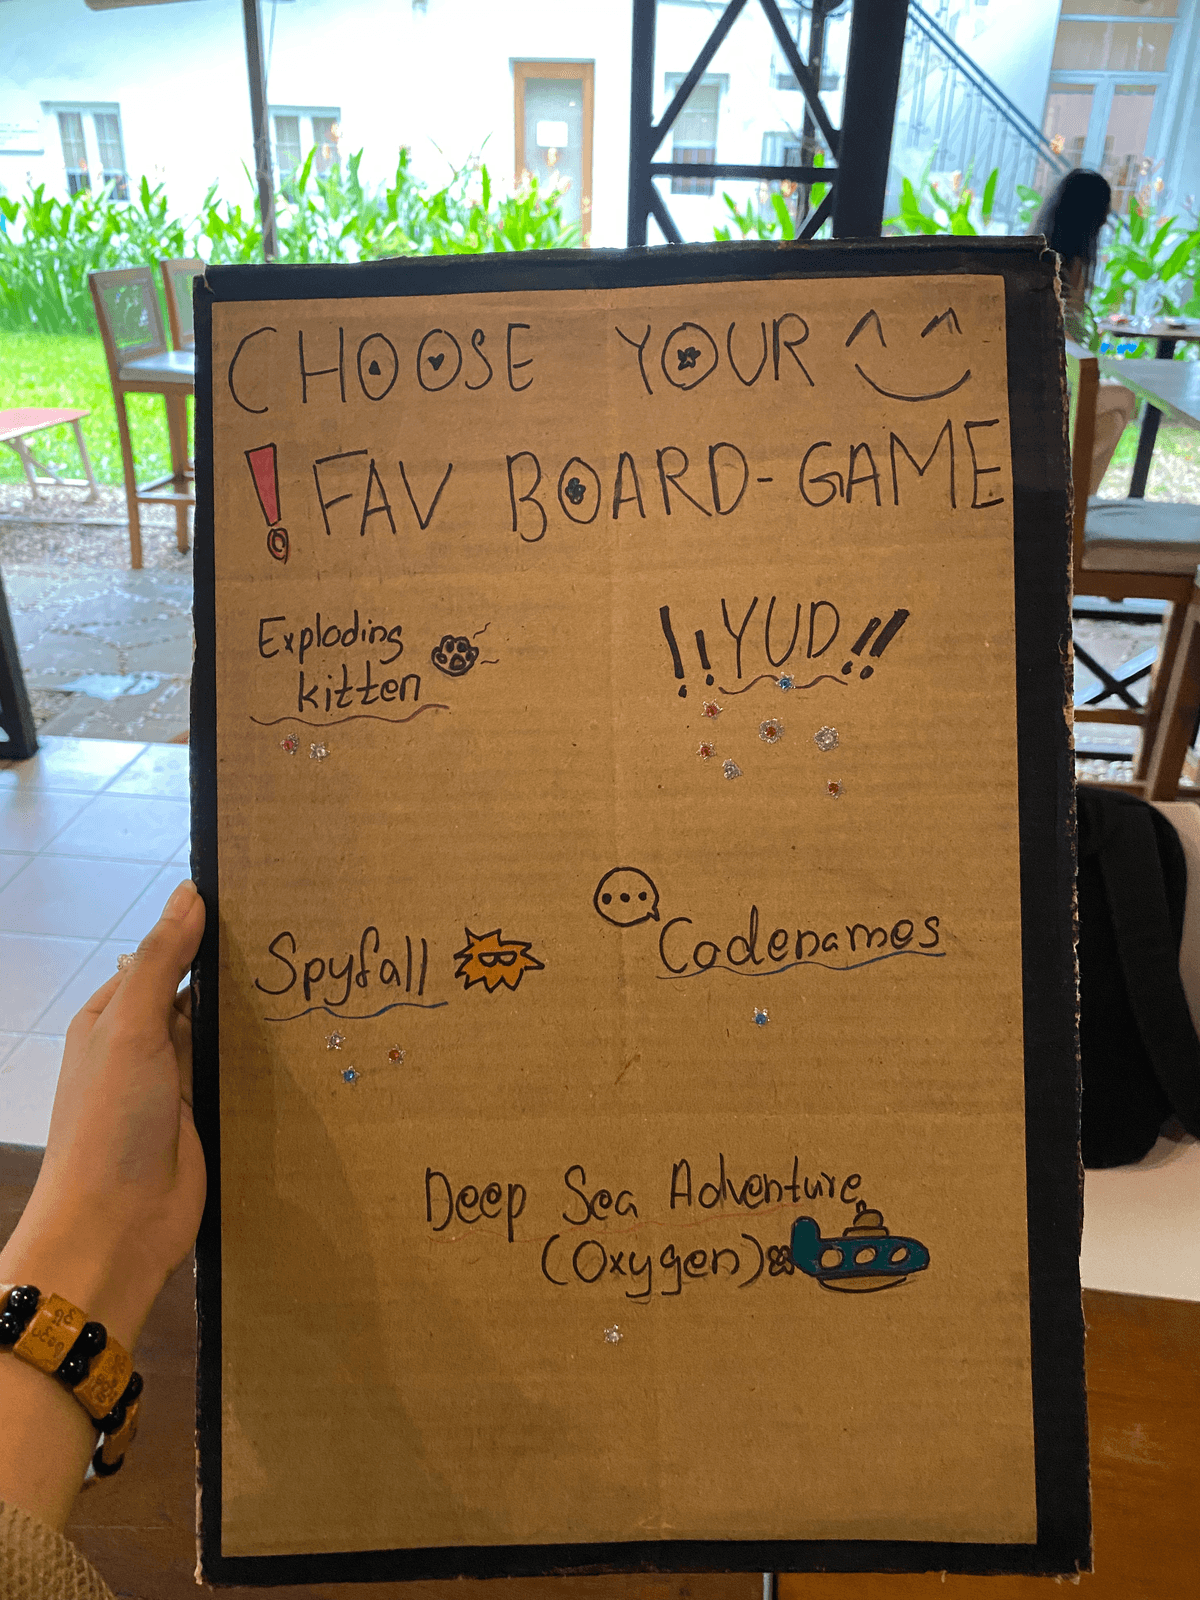 CHOOSE YOUR
! FAV BOARD-GAME
Exploding
kitten
!! YUD !!
Spyfall
Codenames
Deep Sea Adventure
(Oxygen)